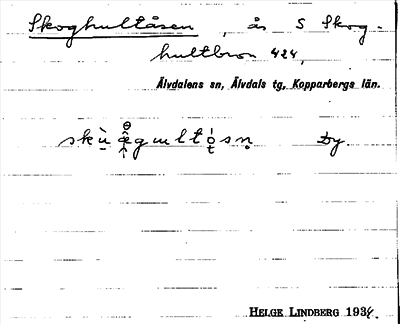 Skoghultåsen, ås S Skog-
hultbron 424,
Älvdalens sn, Älvdals tg, Kopparbergs län.
Dy
HELGE LINDBERG 1934.